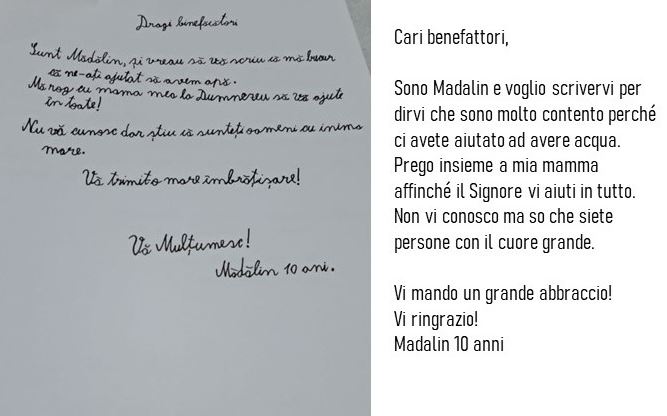 Dragi binefăcători
Sunt Mădălin, și vreau să vă scriu că mă bucur
că ne-ați ajutat să avem apă.
Mă rog cu mama mea la Dumnezeu să vă ajute
în toate!
Nu vă cunosc dar știu că sunteți oameni cu inimă
mare.
Vă trimit o mare îmbrățișare!
Vă Mulțumesc!
Mădălin 10 ani.
Cari benefattori,
Sono Madalin e voglio scrivervi per
dirvi che sono molto contento perché
ci avete aiutato ad avere acqua.
Prego insieme a mia mamma
affinché il Signore vi aiuti in tutto.
Non vi conosco ma so che siete
persone con il cuore grande.
Vi mando un grande abbraccio!
Vi ringrazio!
Madalin 10 anni